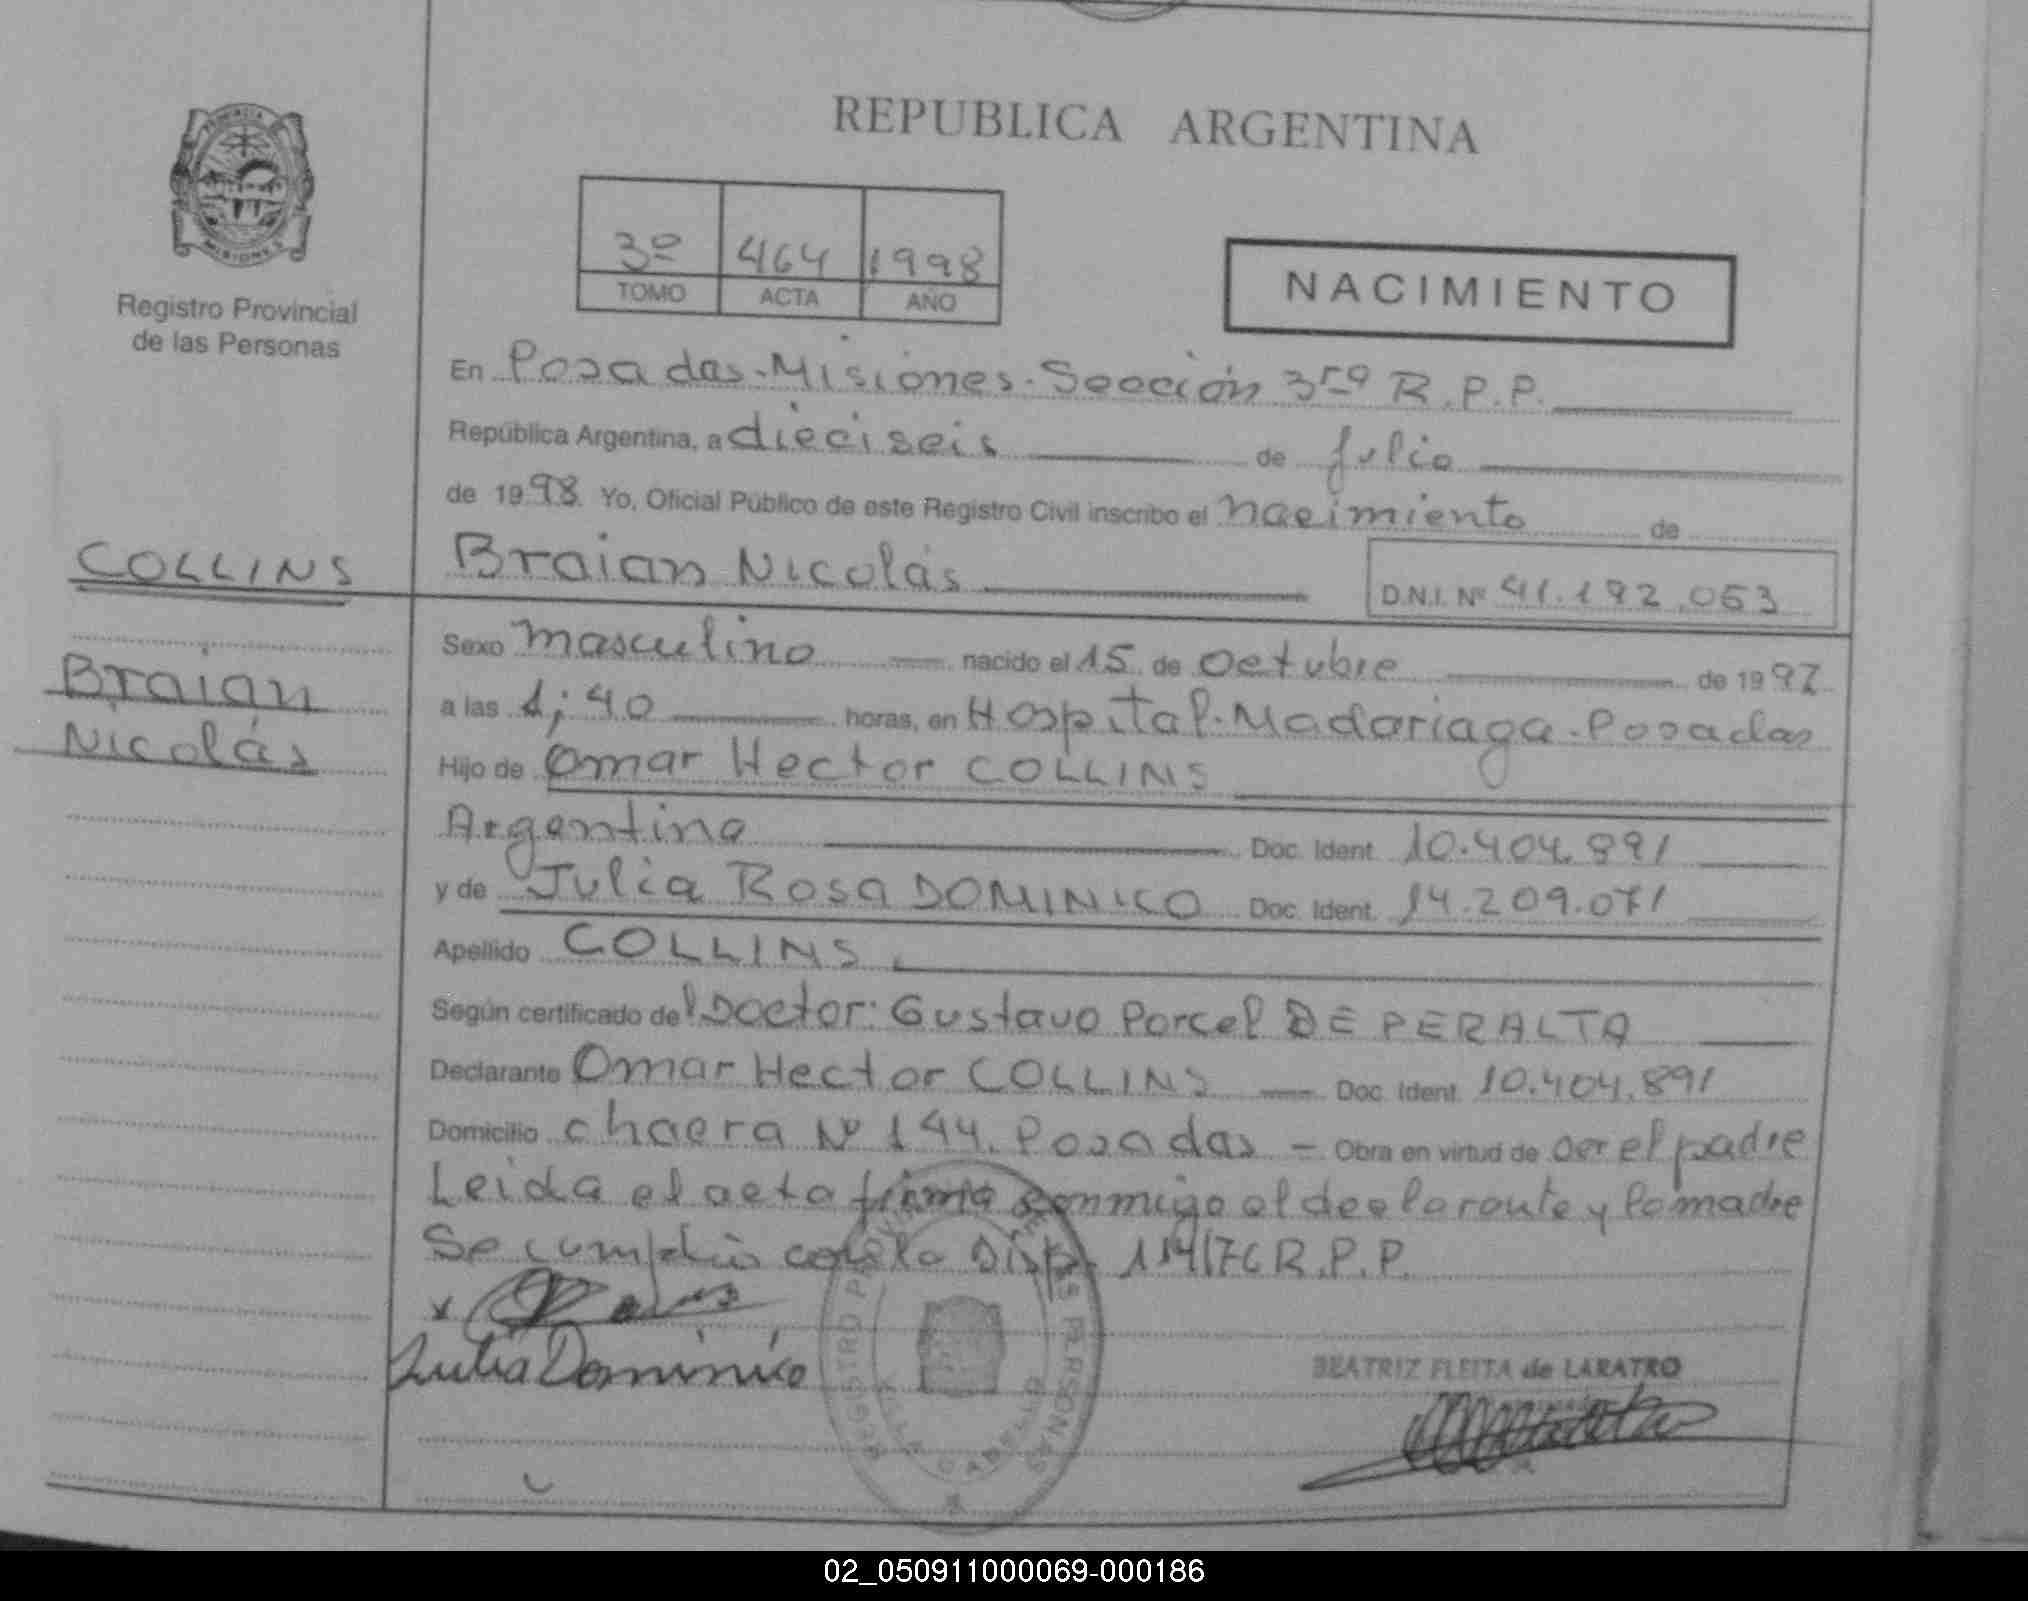 REPUBLICA ARGENTINA
PROVINCIA
MISIONES
Registro Provincial
de las Personas
3º 464 1998
TOMO ACTA AÑO
NACIMIENTO
En Posadas-Misiones-Sección 3ra R.P.P.
República Argentina, a dieciseis de julio
de 1998. Yo, Oficial Público de este Registro Civil inscribo el nacimiento de
COLLINS
Braian Nicolás
D.N.I. Nº 41.192.053
Braian
Nicolás
Sexo masculino nacido el 15 de octubre de 1997
a las 1;40 horas, en Hospital-Madariaga-Posadas
Hijo de Omar Hector COLLINS
Argentino Doc. Ident. 10.404.891
y de Julia Rosa DOMINICO Doc. Ident. 14.209.071
Apellido COLLINS
Según certificado del Doctor: Gustavo Porcel DE PERALTA
Declarante Omar Hector COLLINS Doc. Ident. 10.404.891
Domicilio chacra Nº 144. Posadas - Obra en virtud de ser el padre
Leida el acta firma conmigo el declarante y la madre
Se cumplió con la Disp. 114/76 R.P.P.
Julia Dominico
REGISTRO PROVINCIAL DE LAS PERSONAS
VILLA CABELLO
BEATRIZ FLEITA de LARATRO
02_050911000069-000186